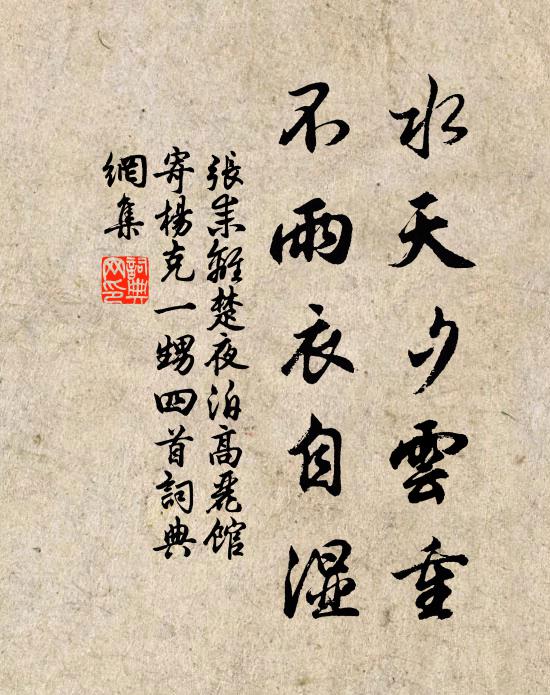 水天夕雲重
不雨衣自濕
張耒離楚夜泊高麗館
寄楊克一甥四首詞典
網集
詞典網印